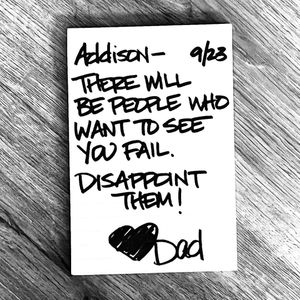 Addison- 9/23
THERE WILL
BE PEOPLE WHO
WANT TO SEE
YOU FAIL.
DISAPPOINT
THEM!
Dad